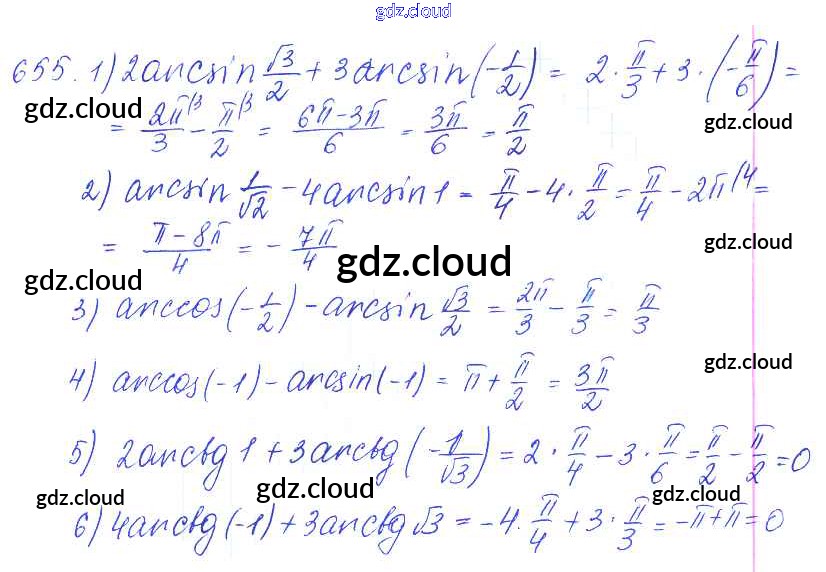 gdz.cloud
655. 1) 2arcsin √3/2 + 3arcsin(-1/2) = 2·π/3 + 3·(-π/6) =
gdz.cloud gdz.cloud
= 2π/3 |3 - π/2 |3 = 6π-3π/6 = 3π/6 = π/2
2) arcsin 1/√2 - 4arcsin1 = π/4 - 4·π/2 = π/4 - 2π |4 =
gdz.cloud
= π-8π/4 = -7π/4
gdz.cloud gdz.cloud
3) arccos(-1/2) - arcsin √3/2 = 2π/3 - π/3 = π/3
gdz.cloud
4) arccos(-1) - arcsin(-1) = π + π/2 = 3π/2
5) 2arctg1 + 3arctg(-1/√3) = 2·π/4 - 3·π/6 = π/2 - π/2 = 0
gdz.cloud gdz.cloud gdz.cloud
6) 4arctg(-1) + 3arctg√3 = -4·π/4 + 3·π/3 = -π+π = 0